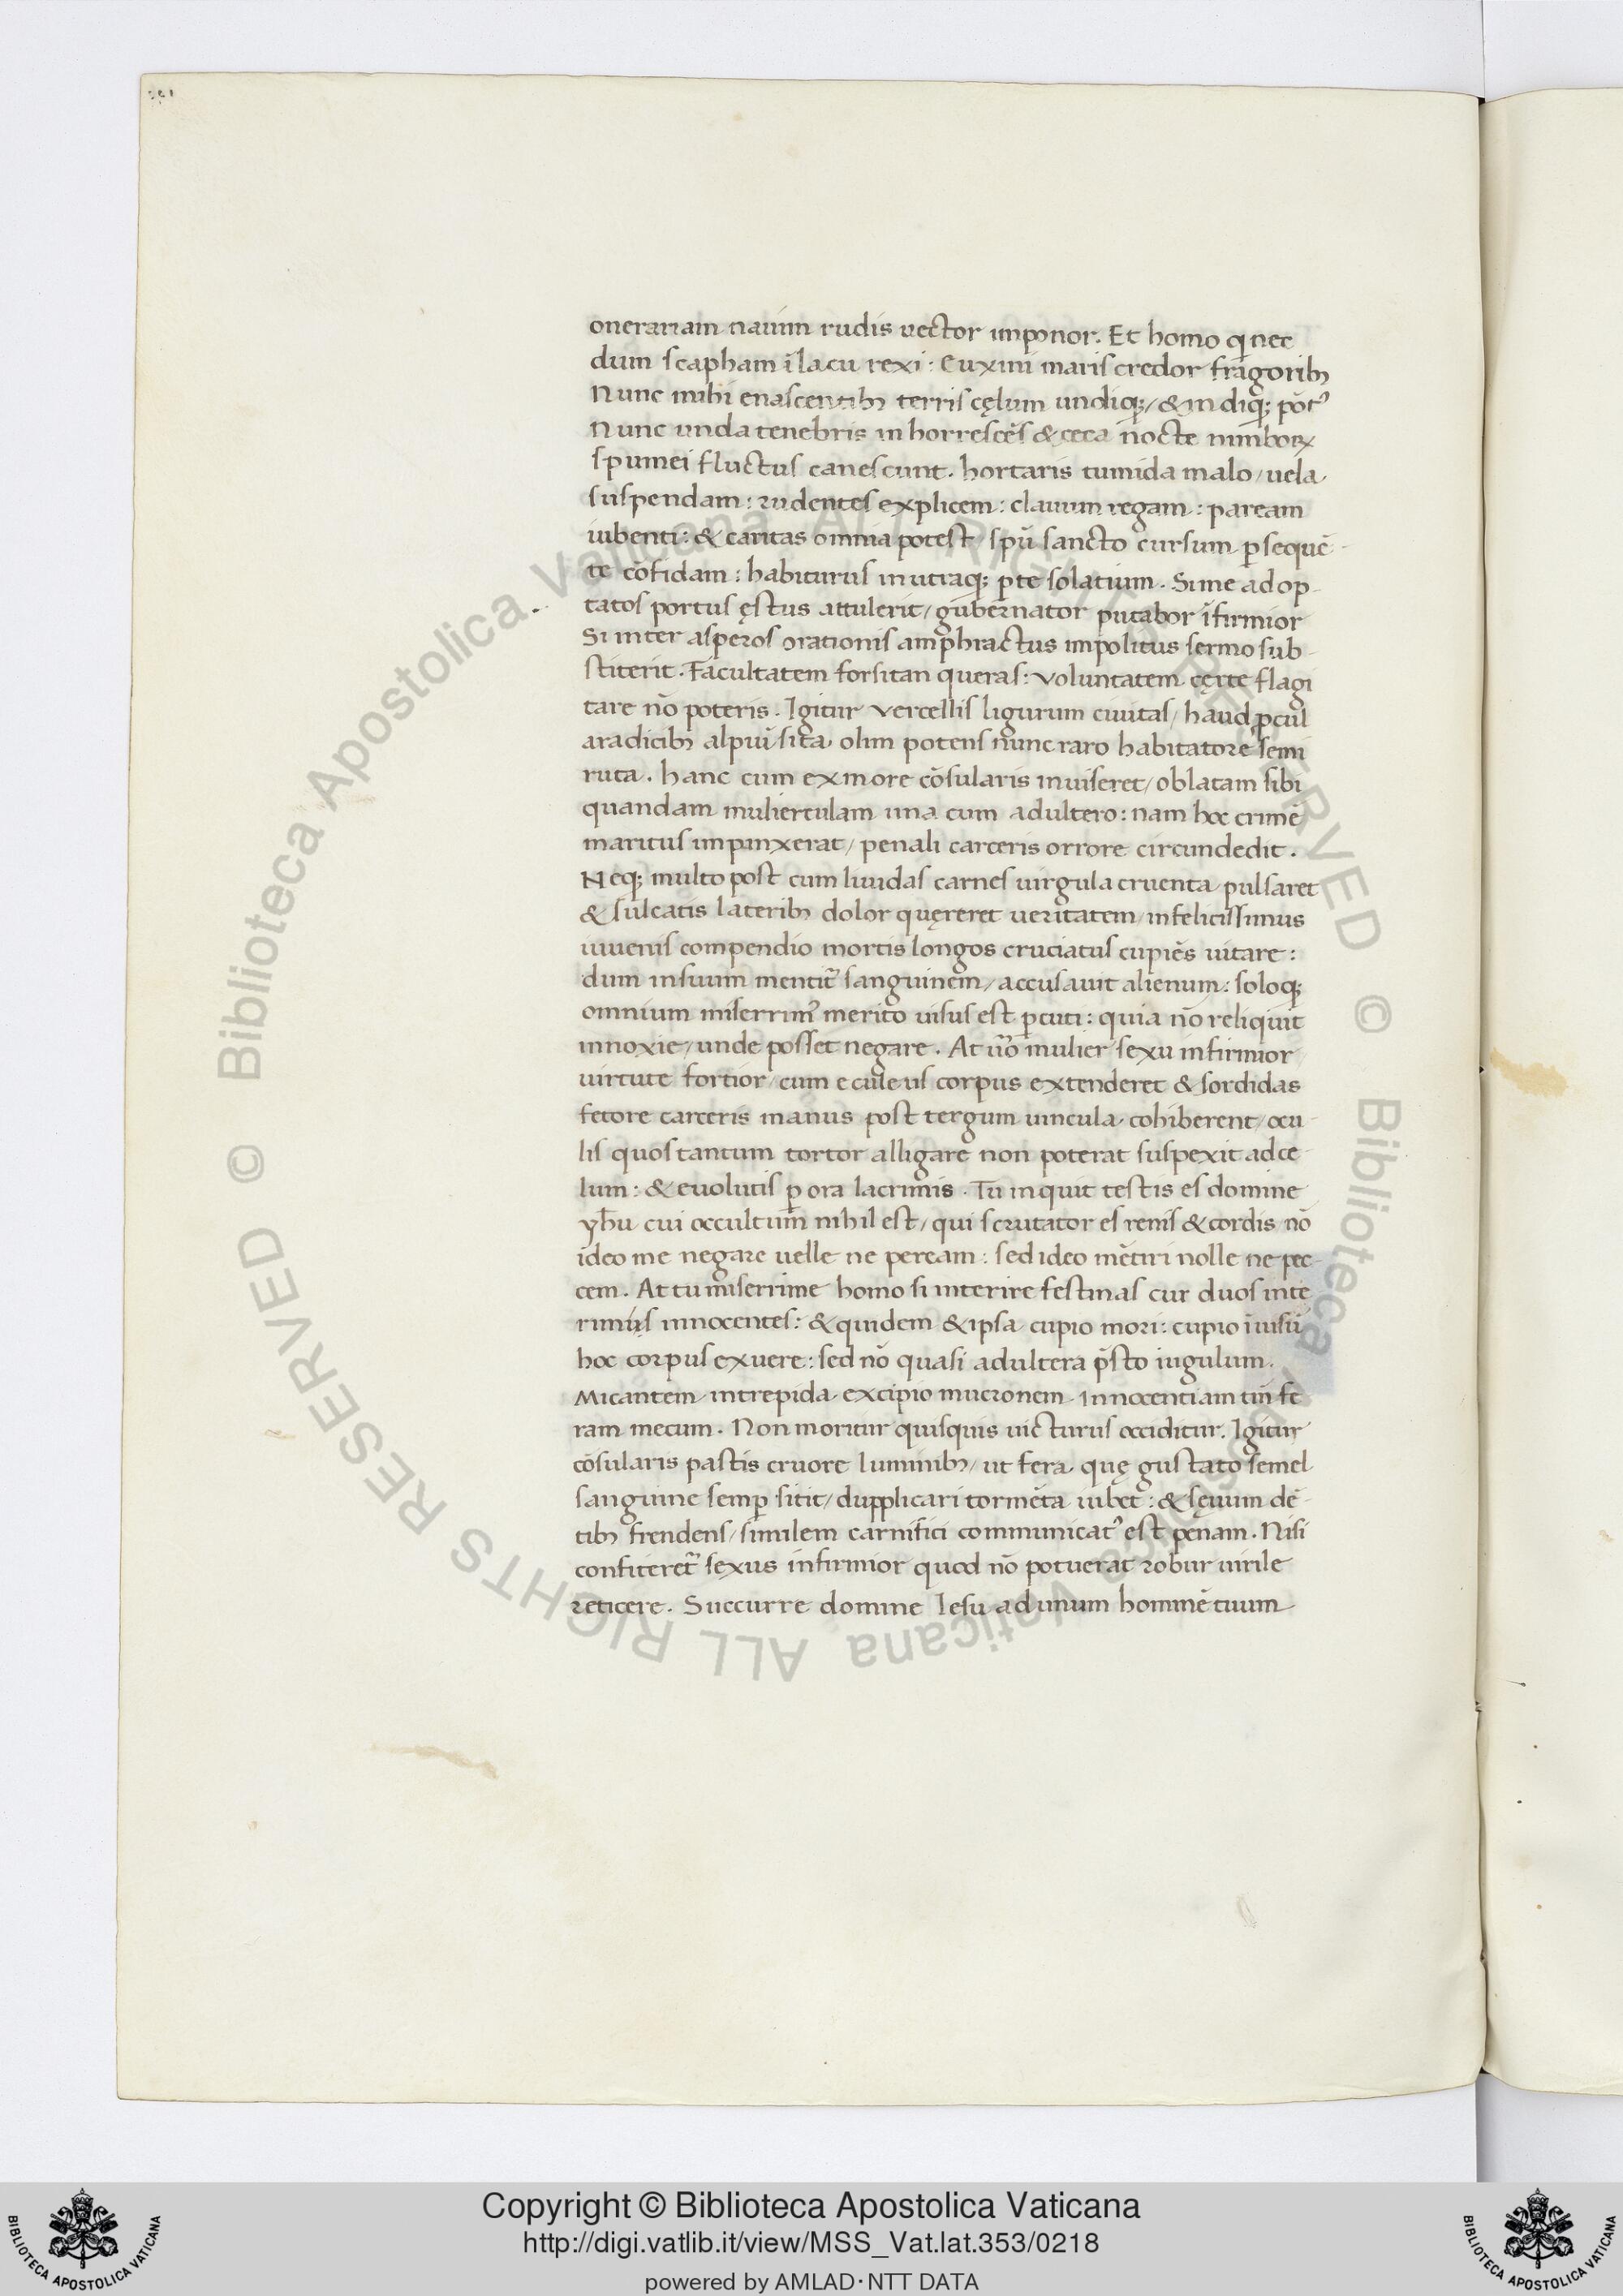 onerariam nauim rudis uector imponor. Et homo q nec
dum scapham ĩ lacu rexi: Euxini maris credor fragorib;
Nunc mihi enascentib; terris cęlum undiq;/ & indiq; põt᾿
Nunc unda tenebris inhorrescẽs & ceca nocte nimboꝝ
spumei fluctus canescunt. hortaris tumida malo/ uela
suspendam: rudentes explicem: clauum regam: paream
iubenti: & caritas omnia potest/ spũ sancto cursum ꝑsequẽ-
te cõfidam: habiturus in utraq; ꝑte solatium. Si me ad op-
tatos portus ęstus attulerit/ gubernator putabor ĩfirmior
Si inter asperos orationis amphractus impolitus sermo sub-
stiterit. Facultatem forsitan queras: voluntatem cęrte flagi
tare nõ poteris. Igitur vercellis ligurum ciuitas/ haud ꝓcul
a radicib; alpiũ sita olim potens nunc raro habitatore semi
ruta. hanc cum ex more cõsularis inuiseret/ oblatam sibi
quandam mulierculam una cum adultero: nam hoc crimẽ
maritus impinxerat/ penali carceris orrore circundedit.
Neq; multo post cum liuidas carnes uirgula cruenta pulsaret
& sulcatis laterib; dolor quęreret ueritatem/ infelicissimus
iuuenis compendio mortis longos cruciatus cupiẽs uitare:
dum in suum mentit᾿ sanguinem/ accusauit alienum: soloq;
omnium miserrim᾿ merito uisus est ꝑcuti: quia nõ reliquit
innoxie/ unde posset negare. At uõ mulier sexu infirmior
uirtute fortior/ cum eculeus corpus extenderet & sordidas
fetore carceris manus post tergum uincula cohiberent/ ocu-
lis quos tantum tortor alligare non poterat suspexit ad ce-
lum: & euolutis ꝑ ora lacrimis. Tu inquit testis es domine
yhũ cui occultum nihil est/ qui scrutator es renis & cordis nõ
ideo me negare uelle ne peream: sed ideo mẽtiri nolle ne pec-
cem. At tu miserrime homo si interire festinas cur duos inte
rimis innocentes: & quidem & ipsa cupio mori: cupio ĩuisũ
hoc corpus exuere: sed nõ quasi adultera p̃sto iugulum.
Micantem intrepida excipio mucronem. Innocentiam tm̃ fe
ram mecum. Non moritur quisquis uicturus occiditur. Igitur
cõsularis pastis cruore luminib;/ ut fera quę gustato semel
sanguine semꝑ sitit/ dupplicari tormẽta iubet: & sęuum dẽ-
tib; frendens/ similem carnifici communicat᾿ est penam. Nisi
confiteret᾿ sexus infirmior quod nõ potuerat robur uirile
reticere. Succurre domine Iesu ad unum hominẽ tuum
Copyright © Biblioteca Apostolica Vaticana
http://digi.vatlib.it/view/MSS_Vat.lat.353/0218
powered by AMLAD·NTT DATA
BIBLIOTECA APOSTOLICA VATICANA
BIBLIOTECA APOSTOLICA VATICANA
© Biblioteca Apostolica Vaticana ALL RIGHTS RESERVED © Biblioteca Apostolica Vaticana ALL RIGHTS RESERVED